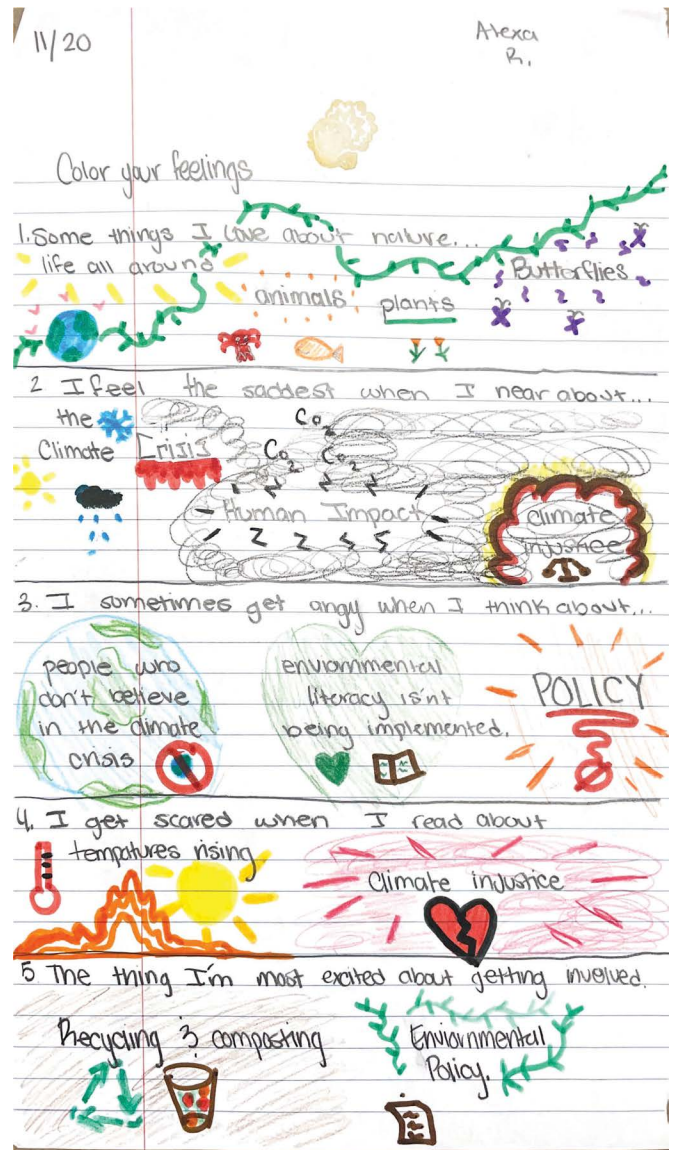 11/20
Alexa
R.
Color your feelings
1. Some things I love about nature...
life all around
animals
plants
Butterflies
2 I feel the saddest when I near about...
the
Climate Crisis
Co2
Co2
Co2
Human Impact
climate
injustice
3. I sometimes get angy when I think about...
people who
don't believe
in the climate
crisis
enviornmental
literacy isn't
being implemented.
POLICY
4. I get scared when I read about
tempatures rising
Climate injustice
5 The thing I'm most excited about getting involved.
Recycling & composting
Enviornmental
Policy.